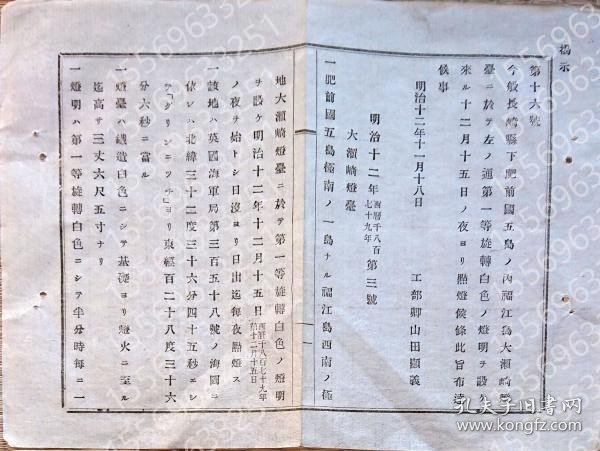 揭示
第十六號
今般長崎縣下肥前國五島ノ內福江島大瀨崎燈
臺ニ於テ左ノ通第一等旋轉白色ノ燈明ヲ設ケ
來ル十二月十五日ノ夜ヨリ點燈候條此旨布達
候事
明治十二年十一月十八日
工部卿山田顯義
明治十二年西曆千八百七十九年第三號
大瀨崎燈臺
一肥前國五島極南ノ一島ナル福江島西南ノ極
地大瀨崎燈臺ニ於テ第一等旋轉白色ノ燈明
ヲ設ケ明治十二年十二月十五日西曆千八百七十九年第十二月十五日
ノ夜ヲ始トシ日沒ヨリ日出迄每夜點燈ス
一該地ハ英國海軍局第三百五十八號ノ海圖ニ
依レハ北緯三十二度三十六分四十五秒ニシ
テ「グリンニッチ」ヨリ東經百二十八度三十六
分六秒ニ當ル
一燈臺ハ鐵造白色ニシテ基礎ヨリ燈火ニ至ル
迄高サ三丈六尺五寸ナリ
一燈明ハ第一等旋轉白色ニシテ半分時每ニ一
15569633251
孔夫子旧书网
www.kongfz.com